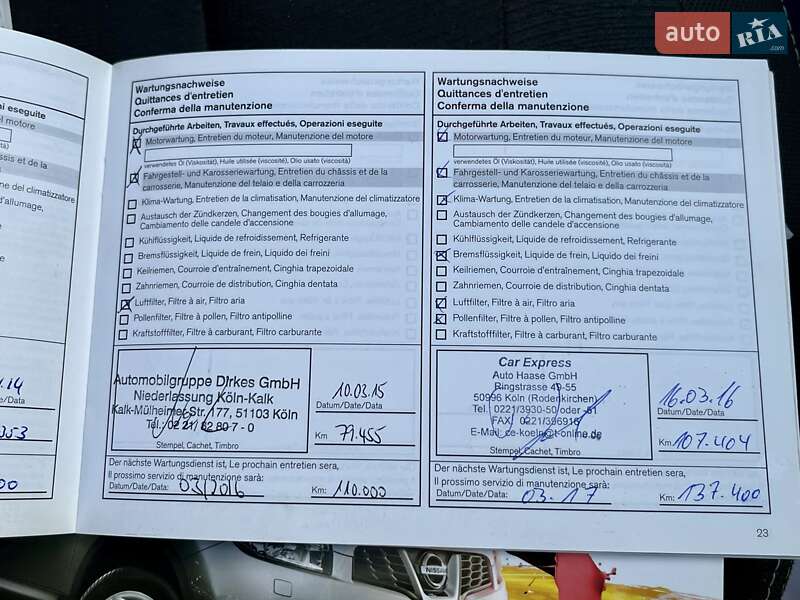 auto RIA .com
eseguite
motore
(à)
chassis et de la
climatizzatore
d'allumage,
1.14
353
00
Wartungsnachweise
Quittances d'entretien
Conferma della manutenzione
Durchgeführte Arbeiten, Travaux effectués, Operazioni eseguite
Motorwartung, Entretien du moteur, Manutenzione del motore
verwendetes Öl (Viskosität), Huile utilisée (viscosité), Olio usato (viscosità)
Fahrgestell- und Karosseriewartung, Entretien du châssis et de la
carrosserie, Manutenzione del telaio e della carrozzeria
Klima-Wartung, Entretien de la climatisation, Manutenzione del climatizzatore
Austausch der Zündkerzen, Changement des bougies d'allumage,
Cambiamento delle candele d'accensione
Kühlflüssigkeit, Liquide de refroidissement, Refrigerante
Bremsflüssigkeit, Liquide de frein, Liquido dei freni
Keilriemen, Courroie d'entraînement, Cinghia trapezoidale
Zahnriemen, Courroie de distribution, Cinghia dentata
Luftfilter, Filtre à air, Filtro aria
Pollenfilter, Filtre à pollen, Filtro antipolline
Kraftstofffilter, Filtre à carburant, Filtro carburante
Automobilgruppe Dirkes GmbH
Niederlassung Köln-Kalk
Kalk-Mülheimer Str. 177, 51103 Köln
Tel.: 02 21/ 82 80 7 - 0
Stempel, Cachet, Timbro
10.03.15
Datum/Date/Data
Km 79.455
Der nächste Wartungsdienst ist, Le prochain entretien sera,
Il prossimo servizio di manutenzione sarà:
Datum/Date/Data: 03/2016 Km: 110.000
Wartungsnachweise
Quittances d'entretien
Conferma della manutenzione
Durchgeführte Arbeiten, Travaux effectués, Operazioni eseguite
Motorwartung, Entretien du moteur, Manutenzione del motore
verwendetes Öl (Viskosität), Huile utilisée (viscosité), Olio usato (viscosità)
Fahrgestell- und Karosseriewartung, Entretien du châssis et de la
carrosserie, Manutenzione del telaio e della carrozzeria
Klima-Wartung, Entretien de la climatisation, Manutenzione del climatizzatore
Austausch der Zündkerzen, Changement des bougies d'allumage,
Cambiamento delle candele d'accensione
Kühlflüssigkeit, Liquide de refroidissement, Refrigerante
Bremsflüssigkeit, Liquide de frein, Liquido dei freni
Keilriemen, Courroie d'entraînement, Cinghia trapezoidale
Zahnriemen, Courroie de distribution, Cinghia dentata
Luftfilter, Filtre à air, Filtro aria
Pollenfilter, Filtre à pollen, Filtro antipolline
Kraftstofffilter, Filtre à carburant, Filtro carburante
Car Express
Auto Haase GmbH
Ringstrasse 49-55
50996 Köln (Rodenkirchen)
Tel. 0221/3930-50 oder -51
FAX 0221/396916
E-Mail: ce-koeln@t-online.de
Stempel, Cachet, Timbro
16.03.16
Datum/Date/Data
Km: 107.404
Der nächste Wartungsdienst ist, Le prochain entretien sera,
Il prossimo servizio di manutenzione sarà:
Datum/Date/Data: 03.17 Km: 137.400
23
NISSAN